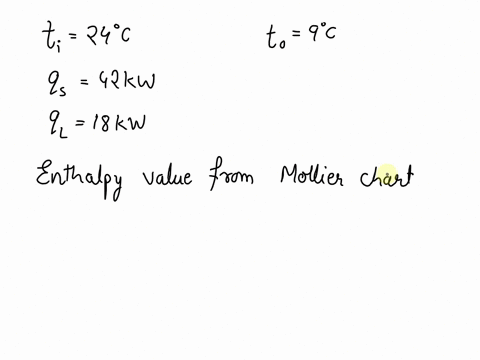 t_i = 24°C
t_o = 9°C
q_s = 42 kW
q_L = 18 kW
Enthalpy value from Mollier chart